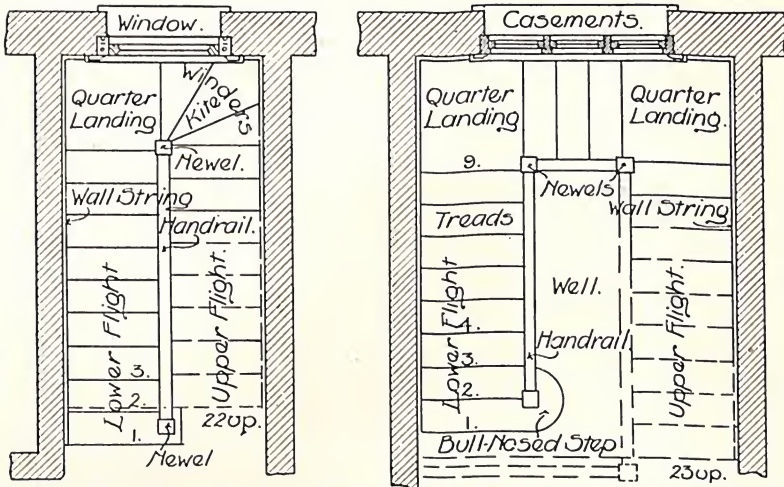 Window.
Quarter
Landing
Winders
Kite
Newel.
Wall String
Handrail.
Lower Flight
Upper Flight.
3.
2.
1.
22 up.
Newel
Casements.
Quarter
Landing
Quarter
Landing.
9.
Newels
Treads
Wall String
Well.
Lower Flight
Upper Flight.
4.
Handrail
3.
2.
1.
Bull-Nosed Step
23 up.